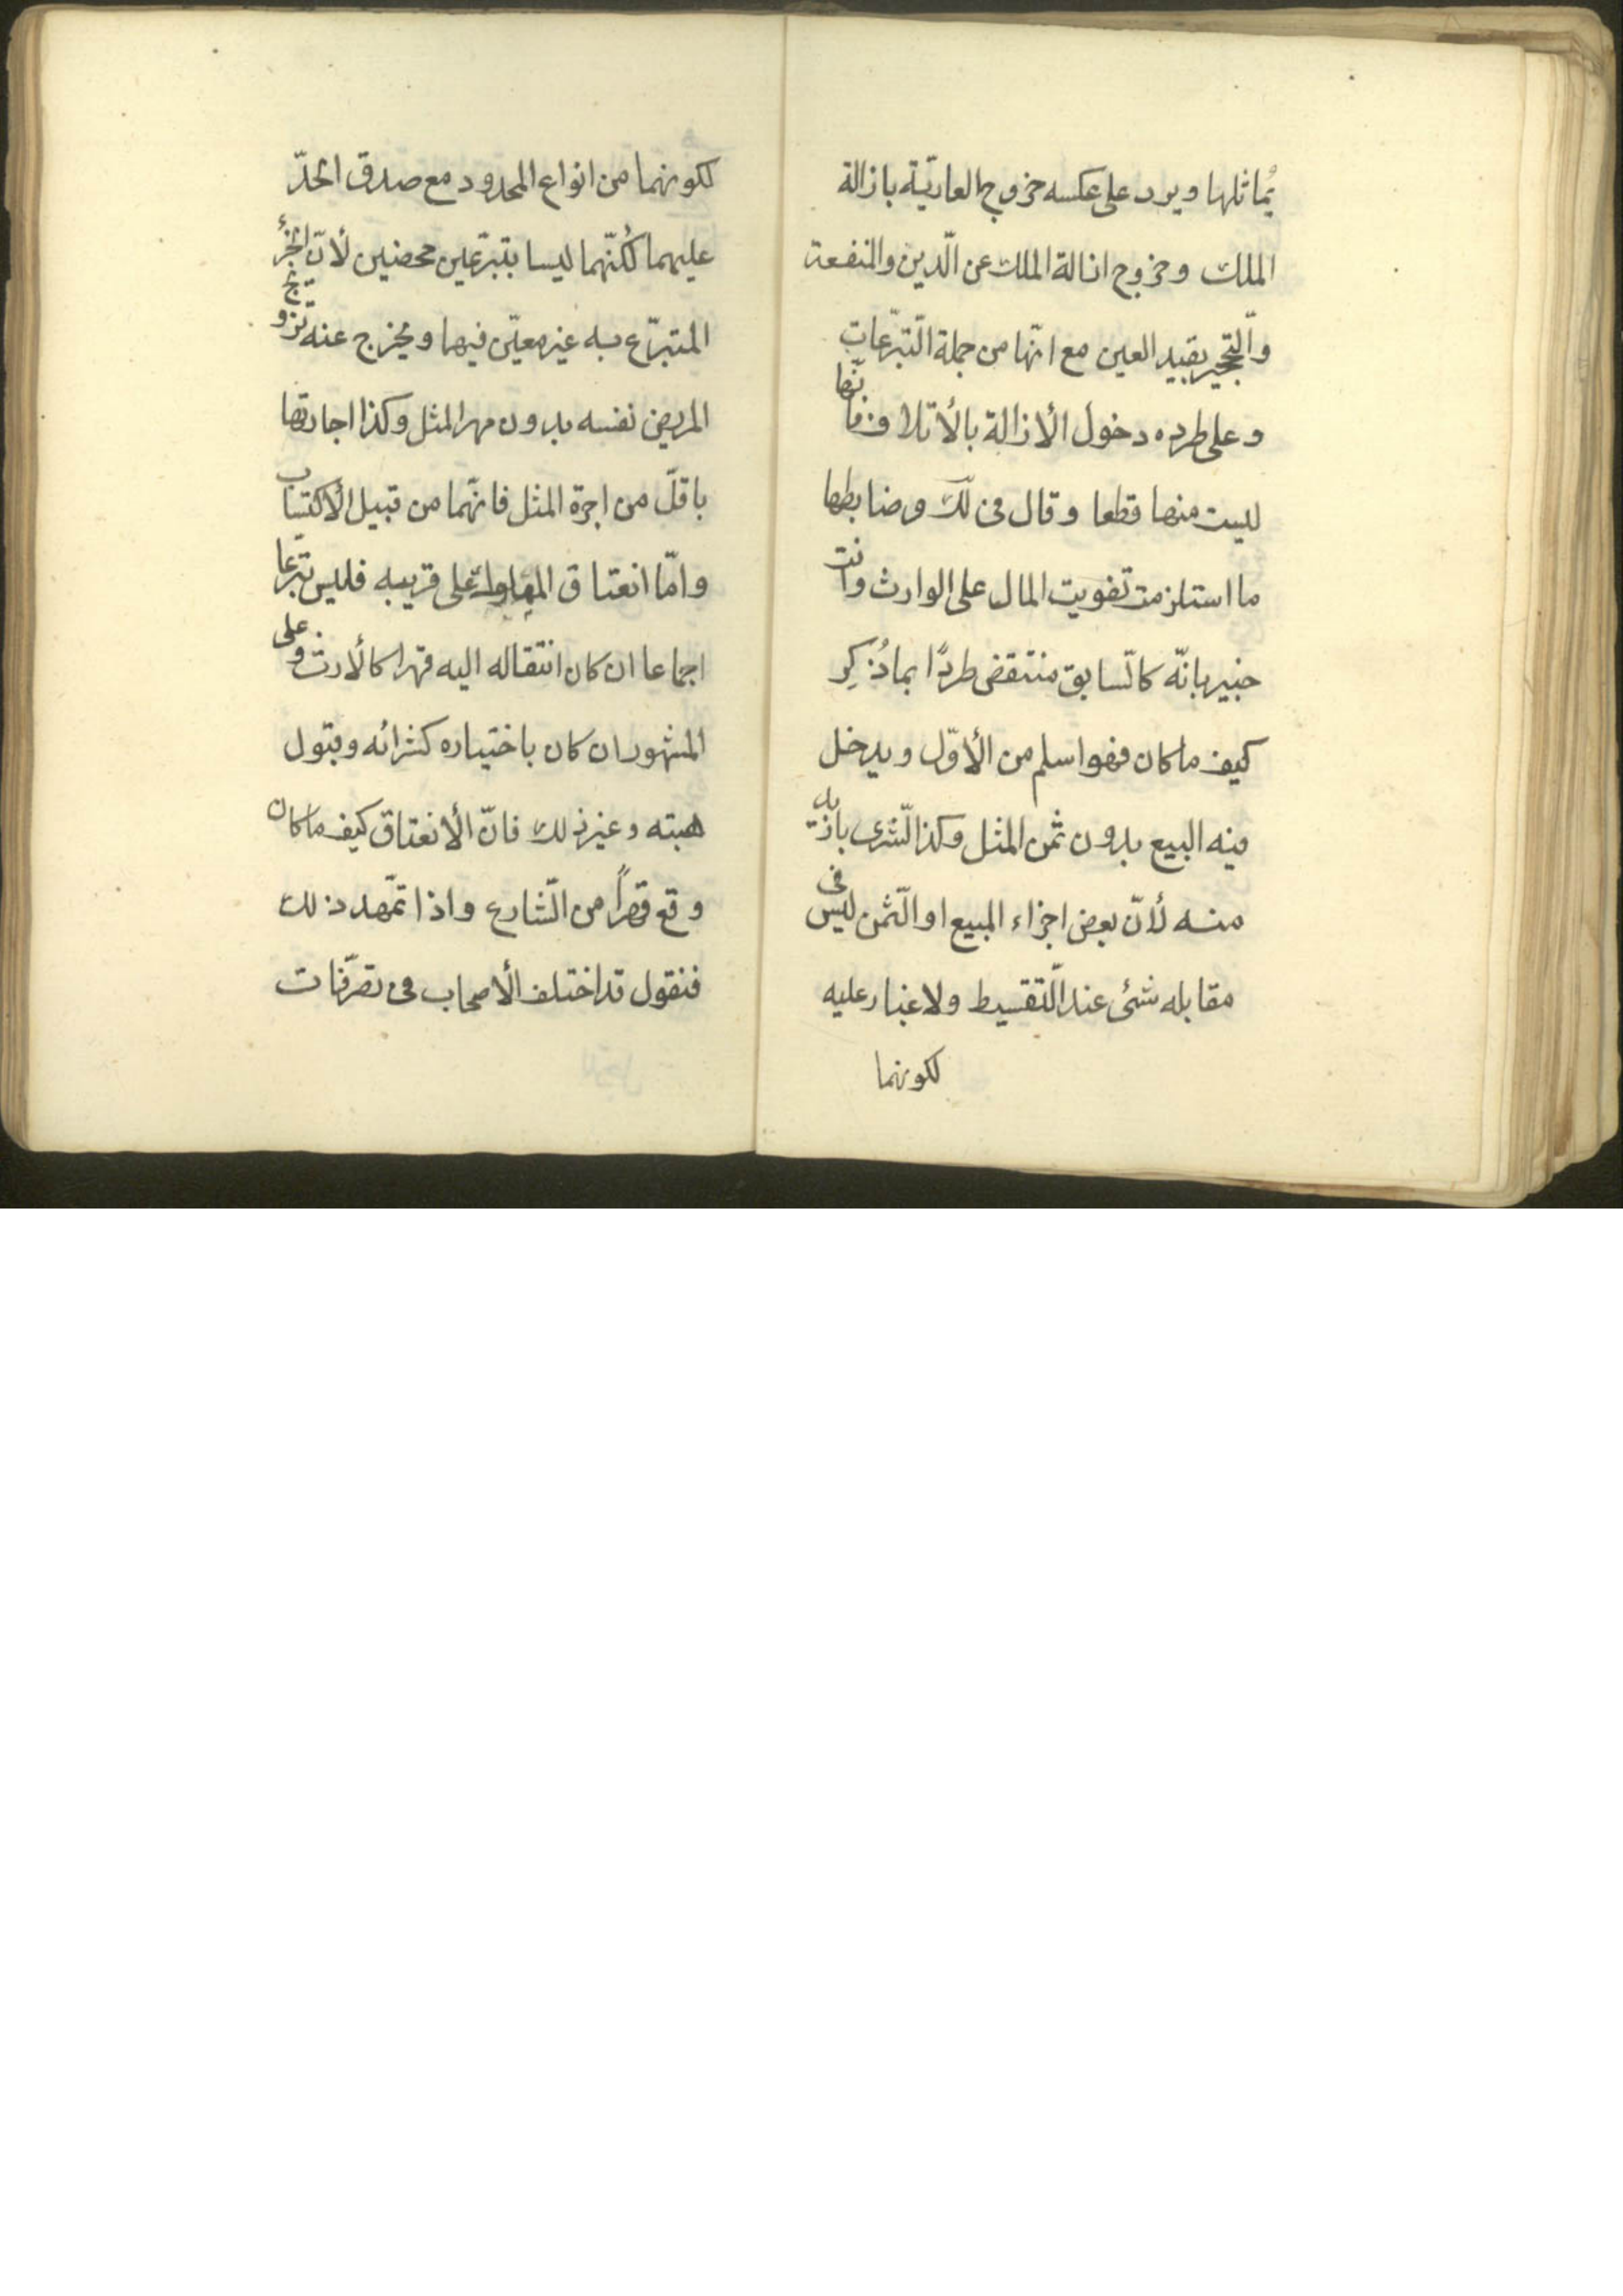 يُماثلها ويرد على عكسه خروج العاريّة بازالة
الملك وخروج ازالة الملك عن الّدين والمنفعة
والّتحجير بقيد العين مع انّها من جملة الّتبرّعات
وعلى طرده دخول الأزالة بالأتلاف فانّها
ليست منها قطعا وقال فى لك وضابطها
ما استلزمت تفويت المال على الوارث وانت
خبير بانّه كالّسابق منتقض طردًا بما ذُكِر
كيف ما كان فهو اسلم من الأوّل ويدخل
فيه البيع بدون ثمن المثل وكذا الّشرى بازيد
منه لأنّ بعض اجزاء المبيع او الّثمن ليس فى
مقابله شئ عند الّتقسيط ولا غبار عليه
لكونهما
لكونهما من انواع المحدود مع صدق الحدّ
عليهما لكنّهما ليسا بتبرّعين محضين لأنّ الجزأ
المتبرّع به غير معيّن فيها ويخرج عنه تزويج
المريض نفسه بدون مهر المثل وكذا اجارتها
باقلّ من اجرة المثل فانّهما من قبيل الأكتساب
وامّا انعتاق المملوك على قريبه فليس تبرّعا
اجماعا ان كان انتقاله اليه قهرا كالأرث وعلى
المشهور ان كان باختياره كشرائه وقبول
هبته وغير ذلك فانّ الأنعتاق كيف ما كان
وقع قهراً من الّشارع واذا تمّهد ذلك
فنقول قد اختلف الأصحاب فى تصرّفات